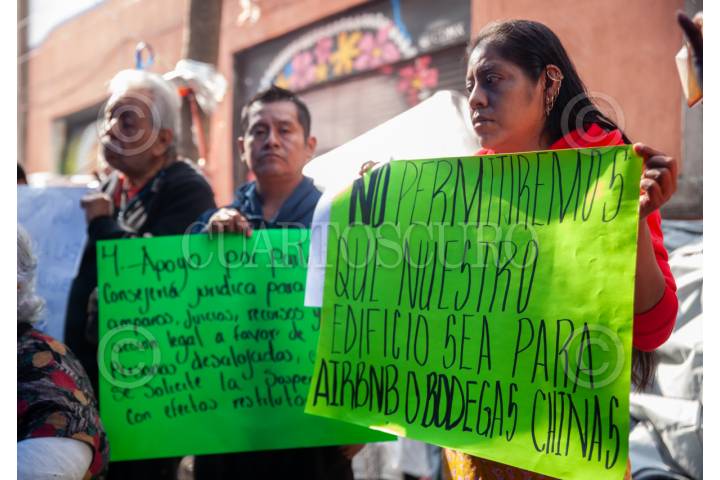 CUARTOSCURO
4.- Apoyo por par
Consejería jurídica para
amparos, juicios, recursos y
sesión legal a favor de
Personas desalojadas,
se solicite la Suspen
con efectos restituto
NO PERMITIREMOS
QUE NUESTRO
EDIFICIO SEA PARA
AIRBNB O BODEGAS CHINAS